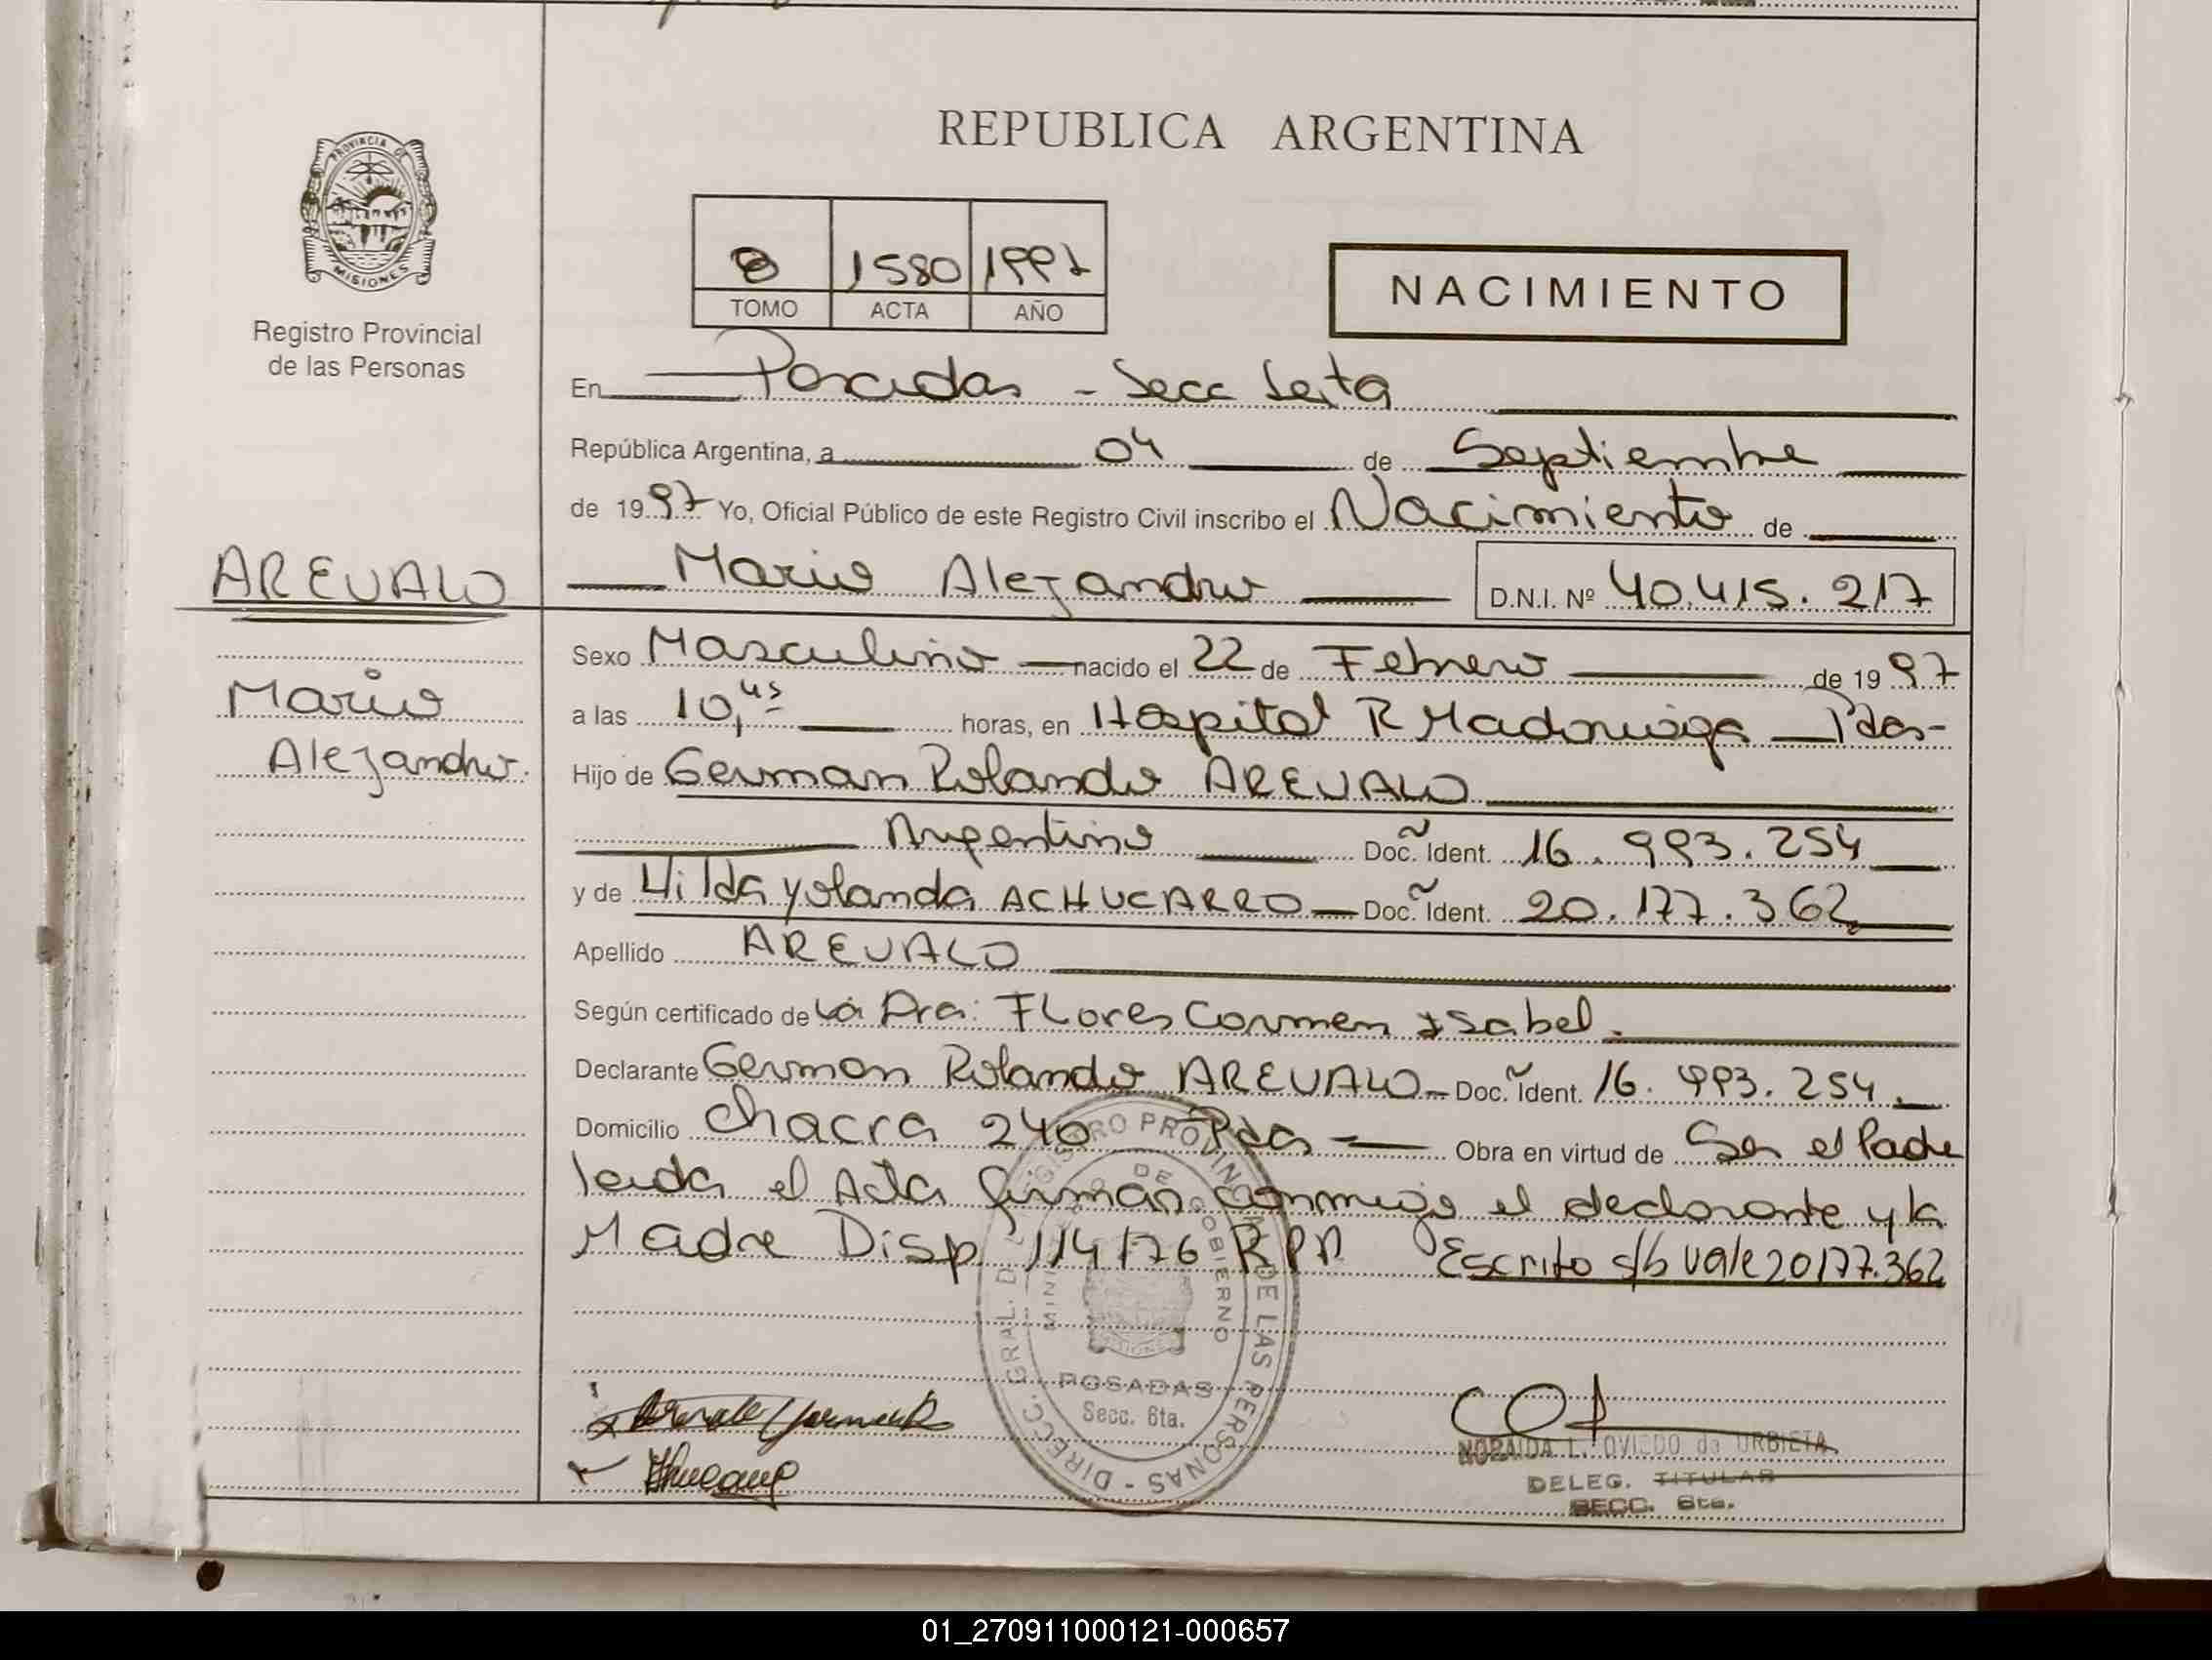 REPUBLICA ARGENTINA
PROVINCIA DE
MISIONES
Registro Provincial
de las Personas
1580 1997
TOMO ACTA AÑO
NACIMIENTO
En Posadas - Secc Sexta
República Argentina, a 04 de Septiembre
de 1997 Yo, Oficial Público de este Registro Civil inscribo el Nacimiento de
AREVALO
Mario Alejandro D.N.I. Nº 40.415.217
Mario
Alejandro.
Sexo Masculino nacido el 22 de Febrero de 1997
a las 10,45 horas, en Hospital R Madariaga Pdas-
Hijo de German Rolando AREVALO
Argentino Doc. Ident. 16.993.254
y de Hilda Yolanda ACHUCARRO Doc. Ident. 20.177.362
Apellido AREVALO
Según certificado de La Dra: Flores Carmen Isabel.
Declarante German Rolando AREVALO Doc. Ident. 16.993.254
Domicilio Chacra 240 Pdas Obra en virtud de Ser el Padre
leida el Acta firman conmigo el declarante y la
Madre Disp 114/76 RPP. Escrito s/b vale 20177.362
DIRECC. GRAL. DEL REGISTRO PROVINCIAL DE LAS PERSONAS
MINISTERIO DE GOBIERNO
POSADAS
Secc. 6ta.
NORAIDA L. OVIEDO de URBIETA
DELEG. TITULAR
SECC. 6ta.
01_270911000121-000657